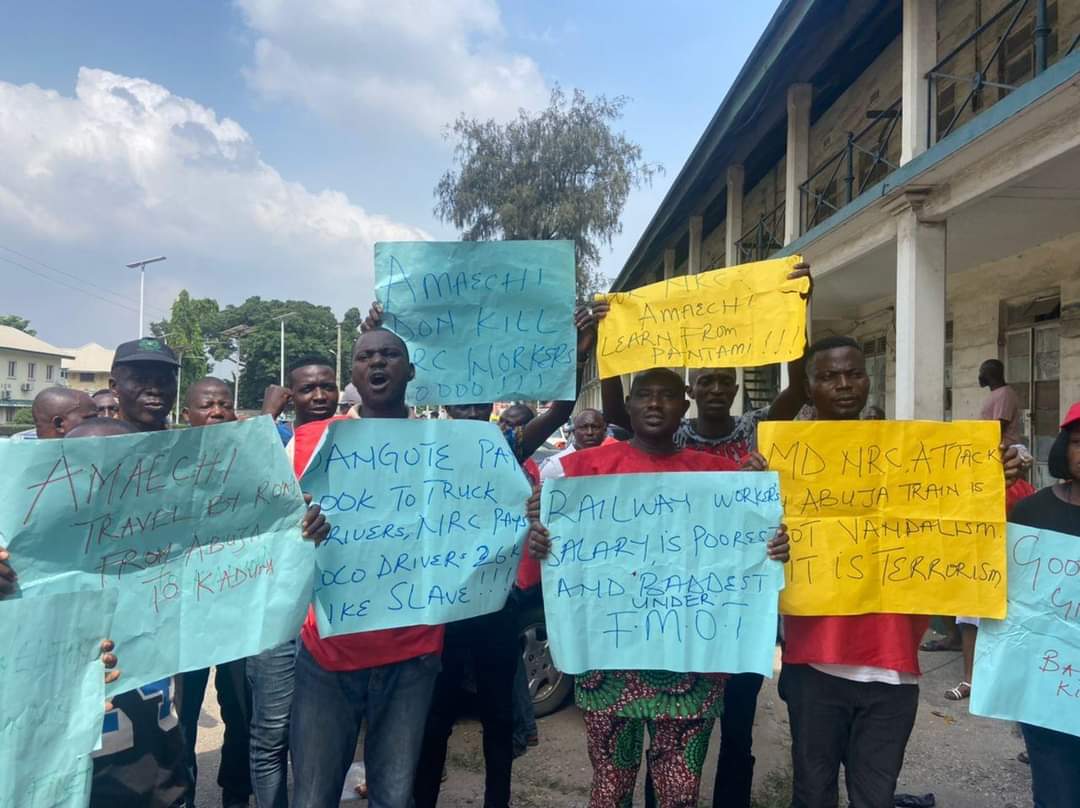 AMAECHI
DON KILL
NRC WORKERS
OOOO !!!
NRC
AMAECHI
LEARN FROM
PANTAMI !!!
AMAECHI
TRAVEL BY ROAD
FROM ABUJA
TO KADUNA
DANGOTE PAY
200K TO TRUCK
DRIVERS, NRC PAYS
LOCO DRIVERS 26K
LIKE SLAVE !!!
RAILWAY WORKERS
SALARY IS POOREST
AND BADDEST
UNDER
F.M.O.T
MD NRC. ATTACK
ABUJA TRAIN IS
NOT VANDALISM.
IT IS TERRORISM
GOO
BA
K